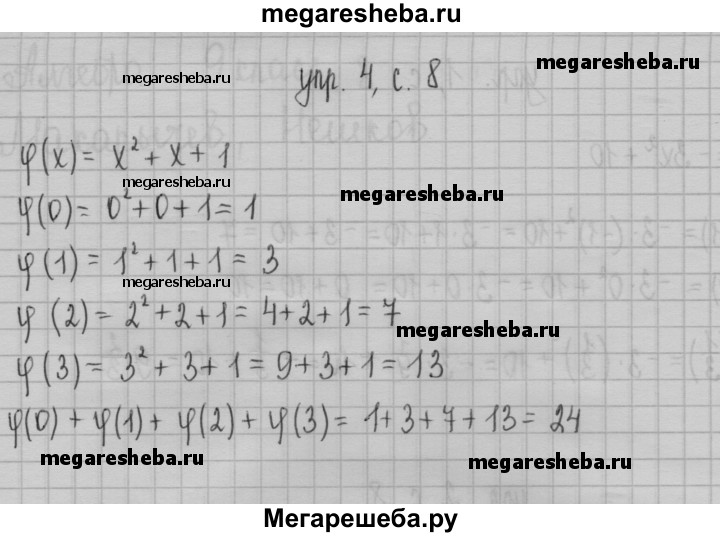 megaresheba.ru
megaresheba.ru
megaresheba.ru
упр. 4, с. 8
φ(x) = x² + x + 1
megaresheba.ru
megaresheba.ru
φ(0) = 0² + 0 + 1 = 1
φ(1) = 1² + 1 + 1 = 3
megaresheba.ru
φ(2) = 2² + 2 + 1 = 4 + 2 + 1 = 7
megaresheba.ru
φ(3) = 3² + 3 + 1 = 9 + 3 + 1 = 13
φ(0) + φ(1) + φ(2) + φ(3) = 1 + 3 + 7 + 13 = 24
megaresheba.ru
megaresheba.ru
Мегарешеба.ру